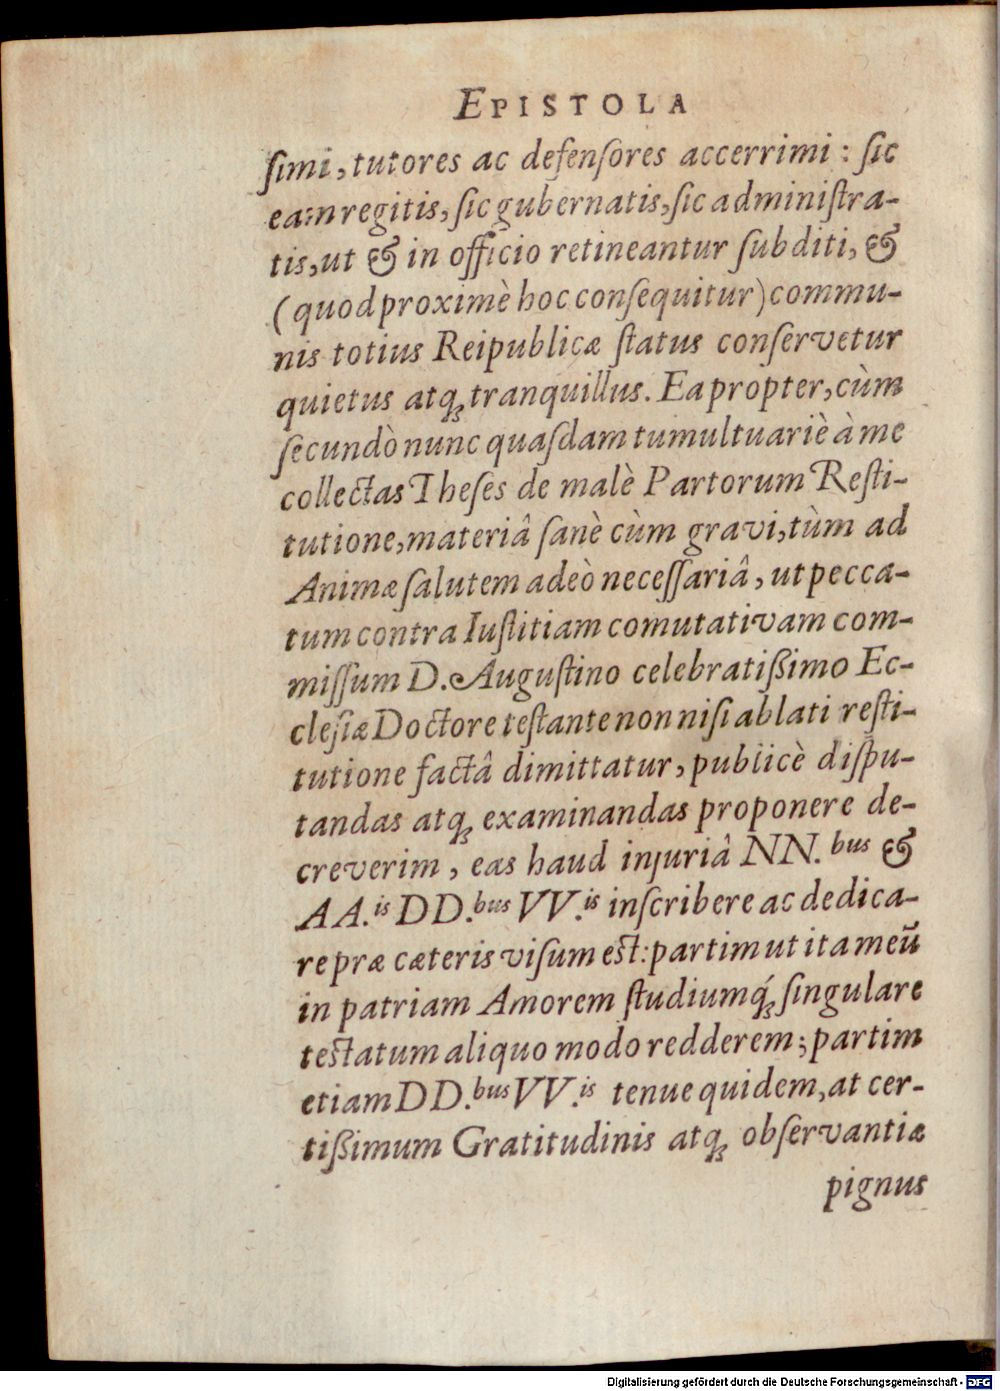 EPISTOLA
ſimi, tutores ac defenſores accerrimi: ſic
eam regitis, ſic gubernatis, ſic adminiſtra-
tis, ut & in officio retineantur ſubditi, &
(quod proximè hoc conſequitur) commu-
nis totius Reipublicæ ſtatus conſervetur
quietus atq́; tranquillus. Eapropter, cùm
ſecundò nunc quaſdam tumultuariè à me
collectas Theſes de malè Partorum Reſti-
tutione, materiâ ſanè cùm gravi, tùm ad
Animæ ſalutem adeò neceſſariâ, ut pecca-
tum contra Iuſtitiam comutativam com-
miſſum D. Auguſtino celebratißimo Ec-
cleſiæ Doctore teſtante non niſi ablati reſti-
tutione factâ dimittatur, publicè diſpu-
tandas atq; examinandas proponere de-
creverim, eas haud injuriâ NN.bus &
AA.is DD.bus VV.is inſcribere ac dedica-
re præ cæteris viſum est: partim ut ita meū
in patriam Amorem ſtudiumq́; ſingulare
teſtatum aliquo modo redderem; partim
etiam DD.bus VV.is tenue quidem, at cer-
tißimum Gratitudinis atq; obſervantiæ
pignus
Digitalisierung gefördert durch die Deutsche Forschungsgemeinschaft - DFG